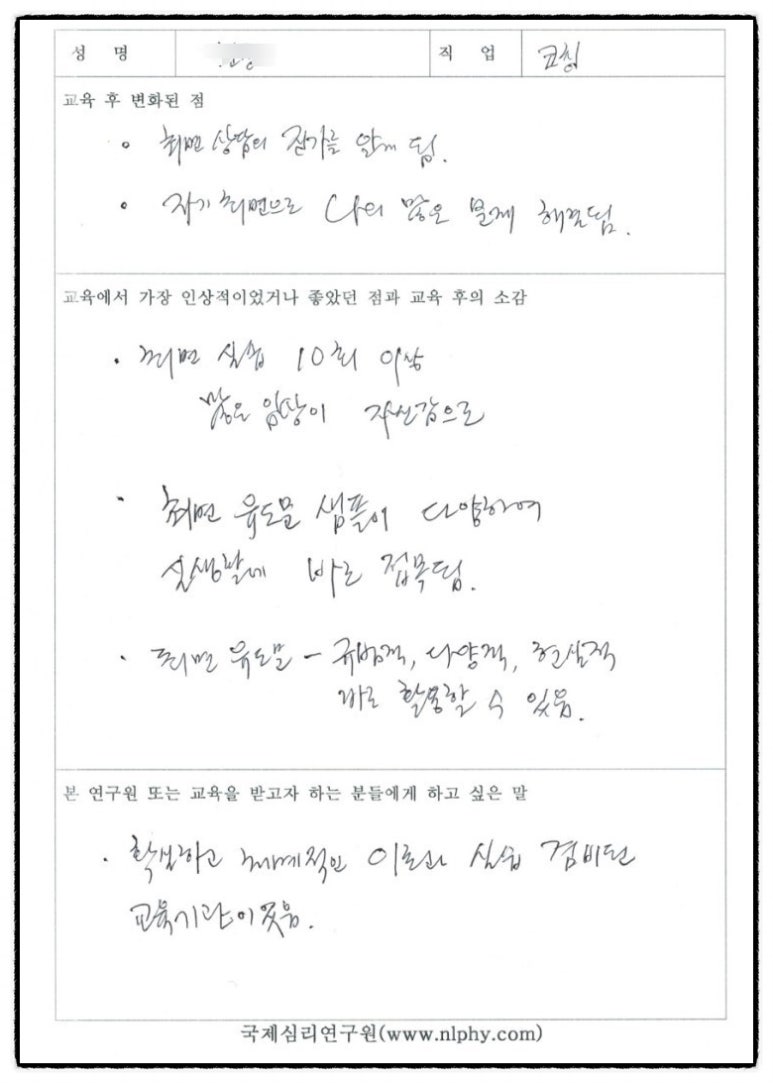 성 명 직 업 코칭
교육 후 변화된 점
◦ 최면 상담의 진가를 알게 됨.
◦ 자기 최면으로 나의 많은 문제 해결됨.
교육에서 가장 인상적이었거나 좋았던 점과 교육 후의 소감
· 최면 실습 10회 이상
많은 임상이 자신감으로
· 최면 유도문 샘플이 다양하여
실생활에 바로 접목됨.
· 최면 유도문 - 규범적, 다양적, 현실적
바로 활용할 수 있음.
본 연구원 또는 교육을 받고자 하는 분들에게 하고 싶은 말
· 확실하고 체계적인 이론과 실습 겸비된
교육기관이었음.
국제심리연구원(www.nlphy.com)